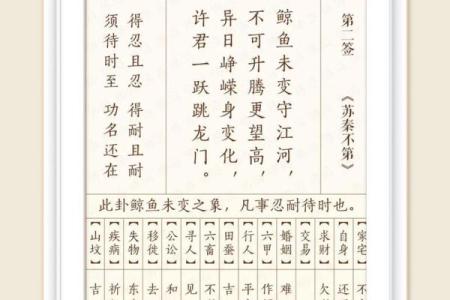 第二签 《苏秦不第》
鲸鱼未变守江河，
不可升腾更望高，
异日峥嵘身变化，
许君一跃跳龙门。
得忍且忍 得耐且耐
须待时至 功名还在
此卦鲸鱼未变之象，凡事忍耐待时也。
【家宅】不
【自身】还
【求财】欠
【交易】
【婚姻】难
【六甲】作
【行人】平
【田蚕】吉
【六畜】不
【寻人】见
【公讼】和
【移徙】去
【失物】东
【疾病】祈
【山坟】吉